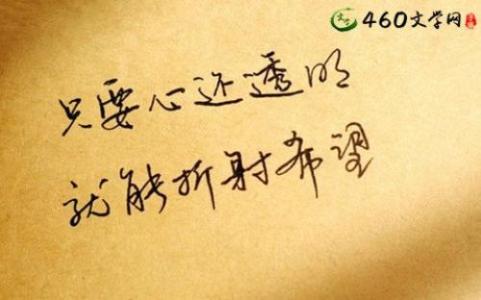 460文学网
只要心还透明
就能折射希望